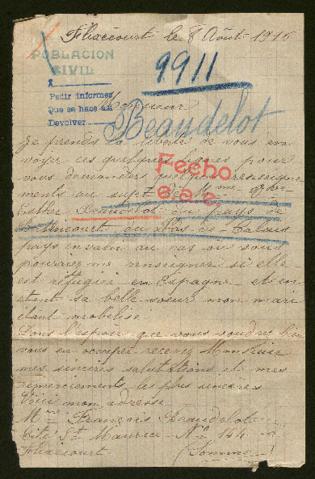 Flixecourt le 8 Août 1915
POBLACION
CIVIL
9911
Pedir informes
Que se hace al
Devolver
Monsieur
Beaudelot
Je prends la liberté de vous en
voyer ces quelques lignes pour
vous demander quelques renseigne
ments au sujet de Mme
Fecho
e.a.c.
Beaudelot du pays de
Liencourt au Pas-de-Calais
pays envahi au cas ou vous
pourriez me renseigner si elle
est réfugiée en Espagne
étant sa belle soeur mon mari
étant mobilisé
Dans l'espoir que vous voudrez bien
vous en occuper recevez Monsieur
mes sincères salutations et mes
remerciements les plus sincères
Voici mon adresse
Mme François Beaudelot
Cité St Maurice No 144
Flixecourt (Somme)